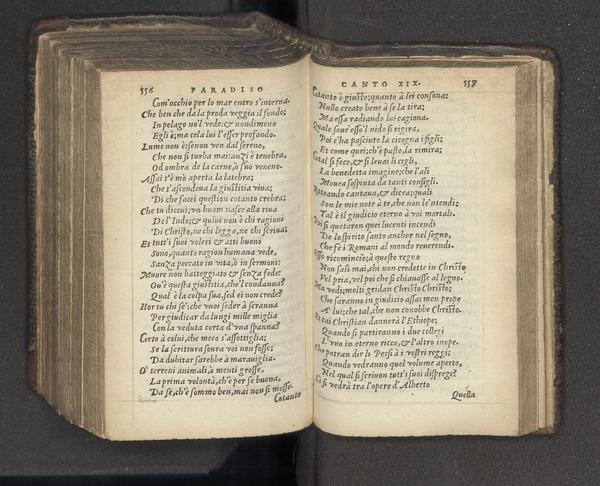 556 PARADISO
Com'occhio per lo mar entro s'interna.
Che ben che da la proda veggia il fondo;
In pelago no'l vede: & nondimeno
Egli è; ma cela lui l'esser profondo.
Lume non è; se non ven dal sereno,
Che non si turba mai: anzi è tenebra,
Od ombra de la carne, ò suo veneno.
Assai t'è mò aperta la latebra;
Che t'ascondeva la giustitia viua;
Di che facei question cotanto crebra;
Che tu diceui; vn huom nasce alla riua
Del'Indo; & quiui non è chi ragioni
Di Christo, ne chi legga, ne chi scriua:
Et tutt'i suoi voleri & atti buoni
Sono, quanto ragion humana vede,
Sanza peccato in vita, ò in sermoni:
Muore non batteggiato & senza fede:
Ou'è questa giustitia, che'l condanna?
Qual è la colpa sua, sed ei non crede?
Hor tu chi se'; che vuoi seder à scranna
Per giudicar da lungi mille miglia
Con la veduta corta d'vna spanna?
Certo à colui, che meco s'assottiglia;
Se la scrittura soura voi non fosse;
Da dubitar sarebbe à marauiglia.
O' terreni animali, ò menti grosse,
La prima volontà, ch'è per se buona,
Da se, ch'è sommo ben, mai non si mosse.
Cotanto
CANTO XIX. 557
Cotanto è giusto; quanto à lei consona:
Nullo creato bene à se la tira;
Ma essa radiando lui cagiona.
Quale sour'esso'l nido si rigira,
Poi c'ha pasciuto la cicogna i figli;
Et come quei; ch'è pasto, la rimira;
Cotal si feco, & si leuai li cigli,
La benedetta imagine; che l'ali
Mouea sospinta da tanti consigli.
Roteando cantaua, & dicea; quali
Son le mie note à te, che non le'ntendi;
Tal è il giudicio eterno à voi mortali.
Poi si quetaron quei lucenti incendi
De lo spirito santo anchor nel segno,
Che fè i Romani al mondo reuerendi.
Esso ricominciò; à questo regno
Non salì mai, chi non credette in Christo,
Vel pria, vel poi che si chiauasse al legno.
Ma vedi; molti gridan Christo Christo;
Che saranno in giudicio assai men prope
A' lui; che tal, che non conobbe Christo.
Et tai Christian dannerà l'Ethiope;
Quando si partiranno i due collegi
L'vno in eterno ricco, & l'altro inope.
Che potran dir li Persi à i vostri reggi;
Quando vedranno quel volume aperto,
Nel qual si scriuon tutt'i suoi dispregi?
Lì si vedrà tra l'opere d'Alberto
Quella